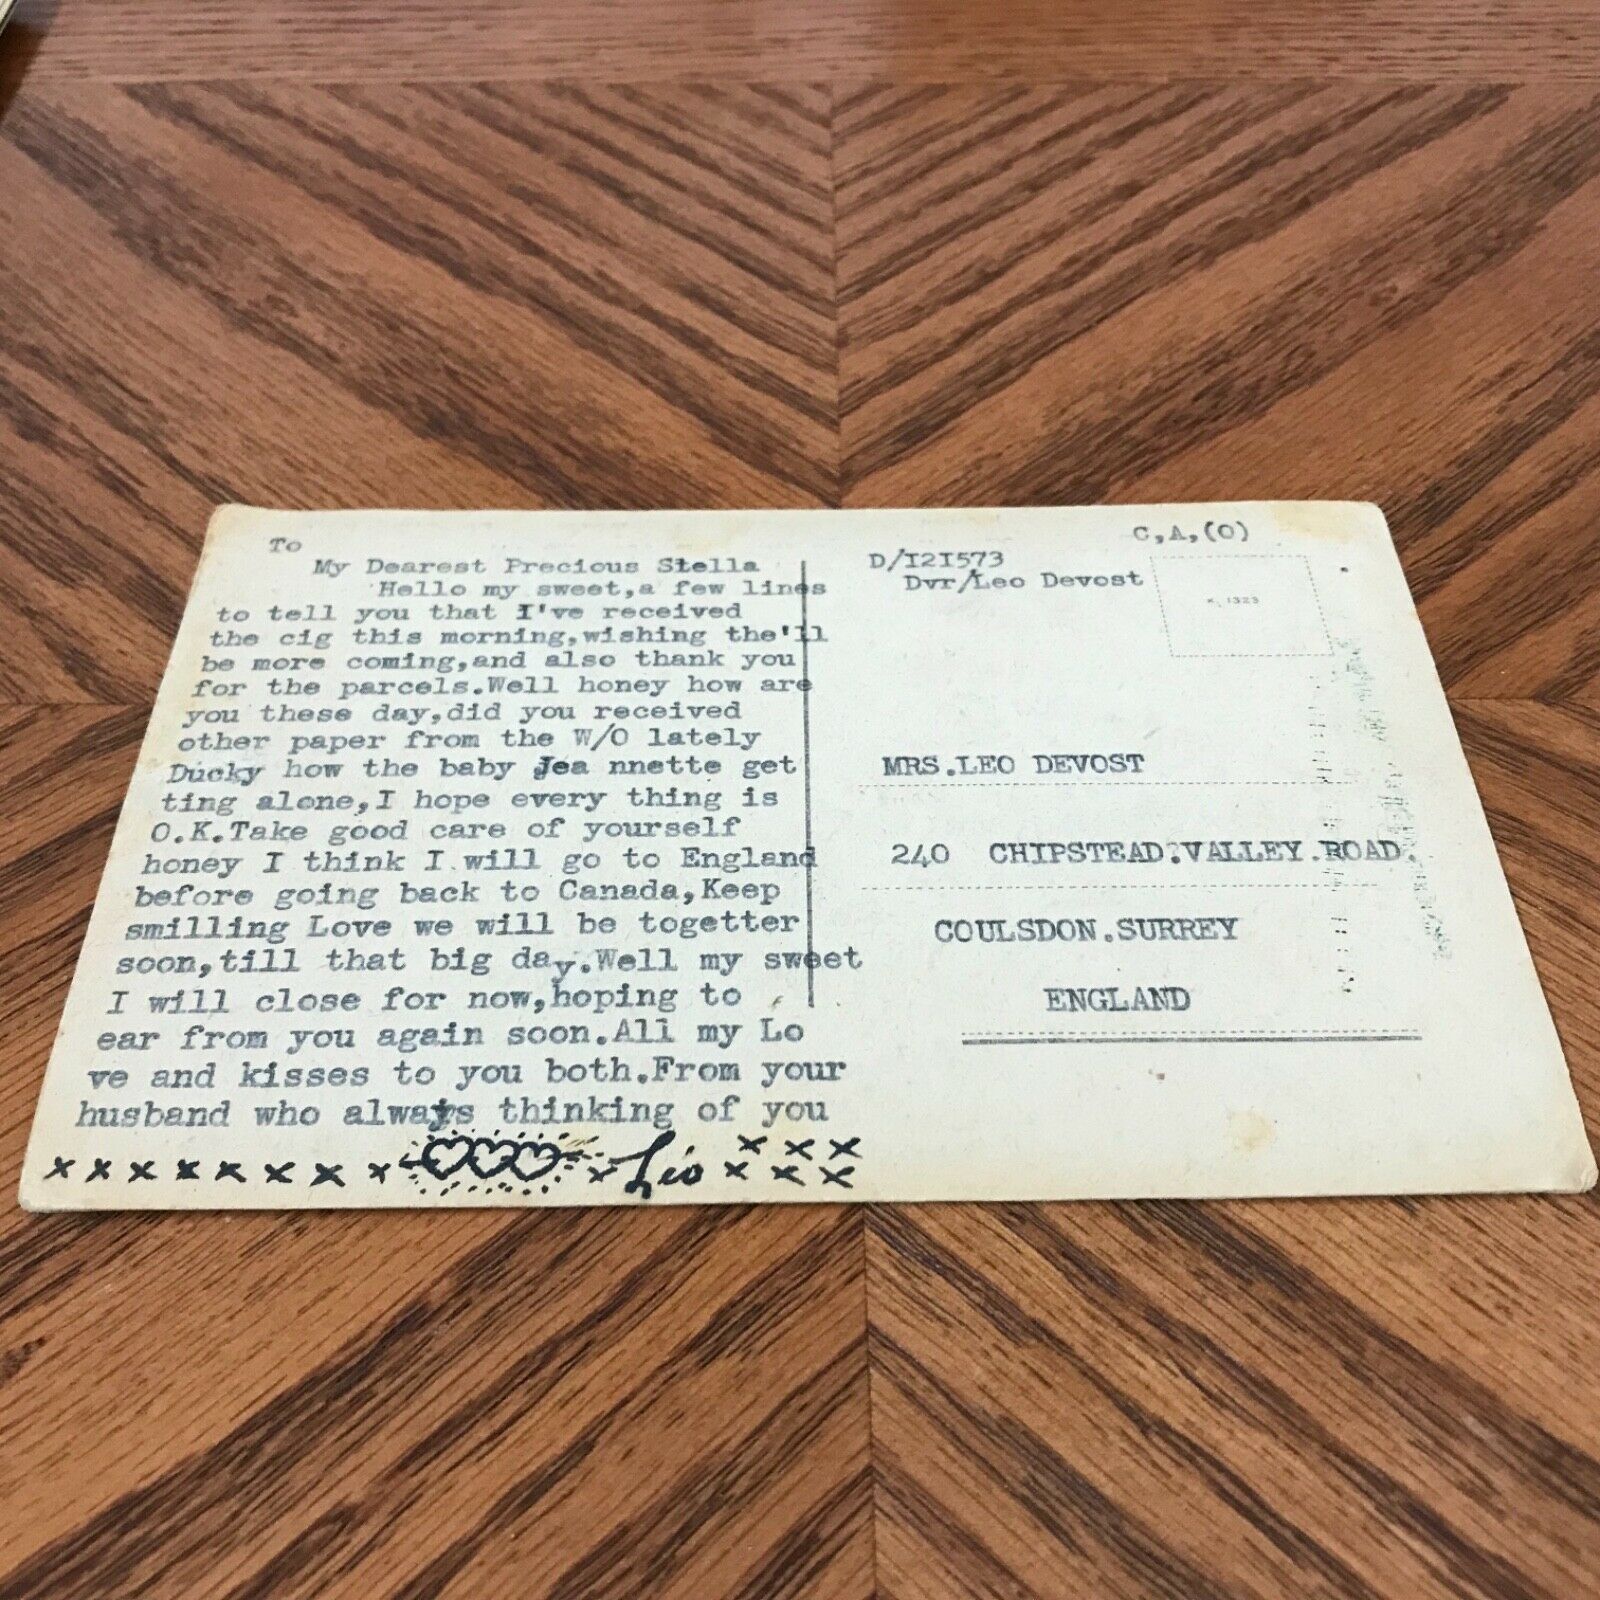 To
My Dearest Precious Stella
Hello my sweet,a few lines
to tell you that I've received
the cig this morning,wishing the'll
be more coming,and also thank you
for the parcels.Well honey how are
you these day,did you received
other paper from the W/O lately
Ducky how the baby Jea nnette get
ting alone,I hope every thing is
O.K.Take good care of yourself
honey I think I will go to England
before going back to Canada,Keep
smilling Love we will be togetter
soon,till that big day.Well my sweet
I will close for now,hoping to
ear from you again soon.All my Lo
ve and kisses to you both.From your
husband who always thinking of you
x x x x x x x x x Leo x x x x x x
C,A,(O)
D/I2I573
Dvr/Leo Devost
K. 1323
MRS.LEO DEVOST
240 CHIPSTEAD.VALLEY.ROAD.
COULSDON.SURREY
ENGLAND